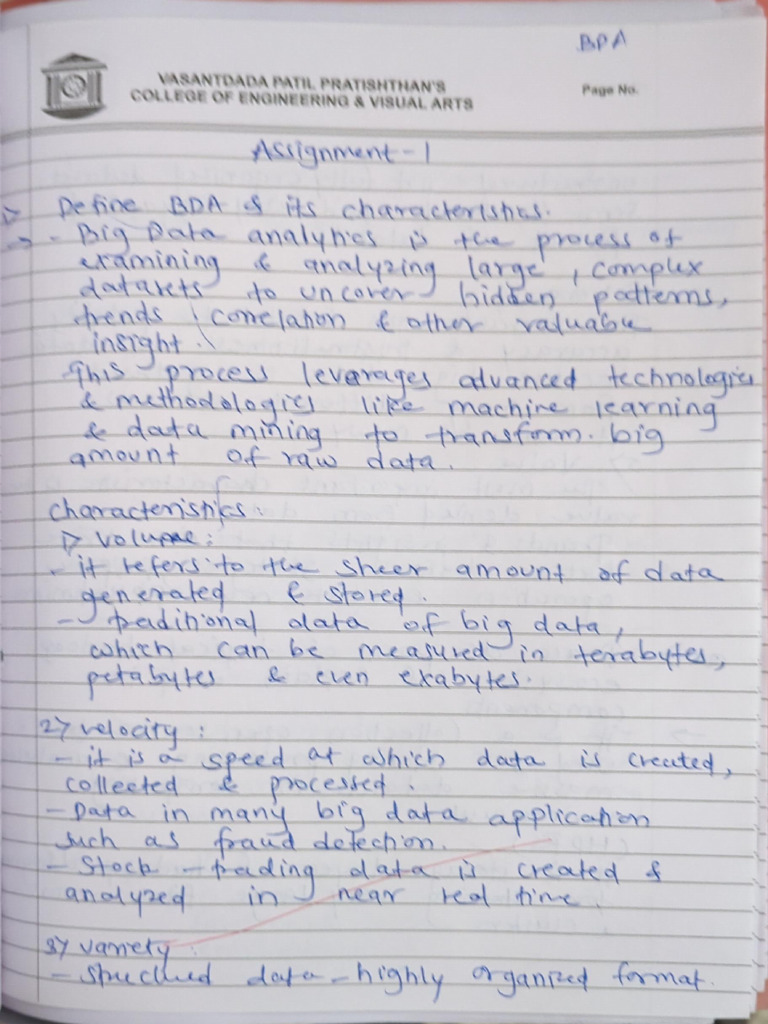 BDA
VASANTDADA PATIL PRATISHTHAN'S
COLLEGE OF ENGINEERING & VISUAL ARTS
Page No.
Assignment-1
1> Define BDA & its characteristics.
→ - Big Data analytics is the process of
examining & analyzing large, complex
datasets to uncover hidden patterns,
trends, correlation & other valuable
insight.
This process leverages advanced technologies
& methodologies like machine learning
& data mining to transform big
amount of raw data.
characteristics:
1> volume:
- it refers to the sheer amount of data
generated & stored.
- traditional data of big data,
which can be measured in terabytes,
petabytes & even exabytes.
2> velocity:
- it is a speed at which data is created,
collected & processed.
- Data in many big data application
such as fraud detection.
- Stock - trading data is created &
analyzed in near real time.
3> variety
- structured data - highly organized format.